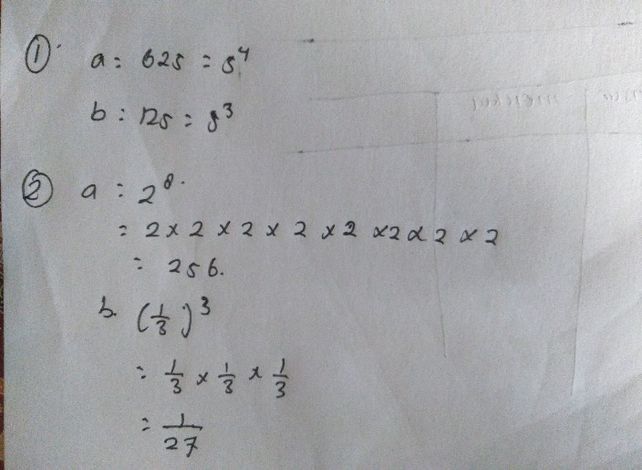 ① a = 625 = 5⁴
b = 125 = 5³
② a = 2⁸.
= 2 x 2 x 2 x 2 x 2 x 2 x 2 x 2
= 256.
b. (1/3)³
= 1/3 x 1/3 x 1/3
= 1/27